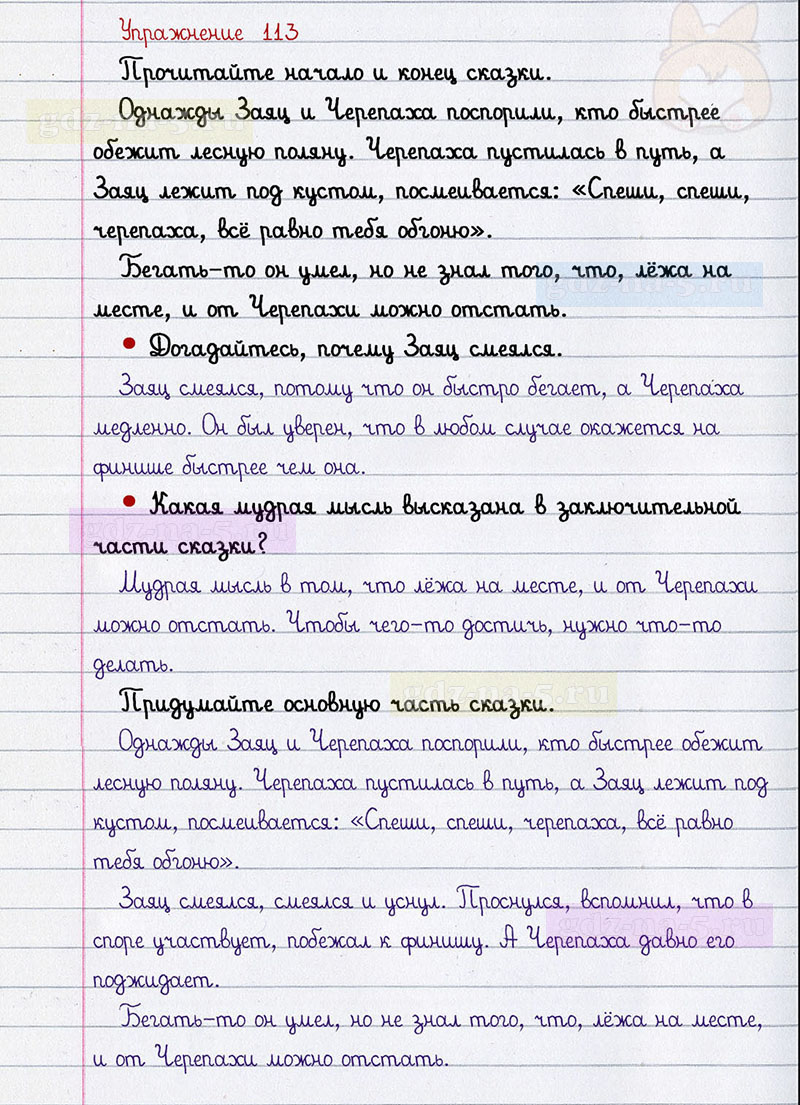 Упражнение 113
Прочитайте начало и конец сказки.
Однажды Заяц и Черепаха поспорили, кто быстрее
обежит лесную поляну. Черепаха пустилась в путь, а
Заяц лежит под кустом, посмеивается: «Спеши, спеши,
черепаха, всё равно тебя обгоню».
Бегать-то он умел, но не знал того, что, лёжа на
месте, и от Черепахи можно отстать.
• Догадайтесь, почему Заяц смеялся.
Заяц смеялся, потому что он быстро бегает, а Черепаха
медленно. Он был уверен, что в любом случае окажется на
финише быстрее чем она.
• Какая мудрая мысль высказана в заключительной
части сказки?
Мудрая мысль в том, что лёжа на месте, и от Черепахи
можно отстать. Чтобы чего-то достичь, нужно что-то
делать.
Придумайте основную часть сказки.
Однажды Заяц и Черепаха поспорили, кто быстрее обежит
лесную поляну. Черепаха пустилась в путь, а Заяц лежит под
кустом, посмеивается: «Спеши, спеши, черепаха, всё равно
тебя обгоню».
Заяц смеялся, смеялся и уснул. Проснулся, вспомнил, что в
споре участвует, побежал к финишу. А Черепаха давно его
поджидает.
Бегать-то он умел, но не знал того, что, лёжа на месте,
и от Черепахи можно отстать.
gdz-na-5.ru
gdz-na-5.ru
gdz-na-5.ru
gdz-na-5.ru
gdz-na-5.ru